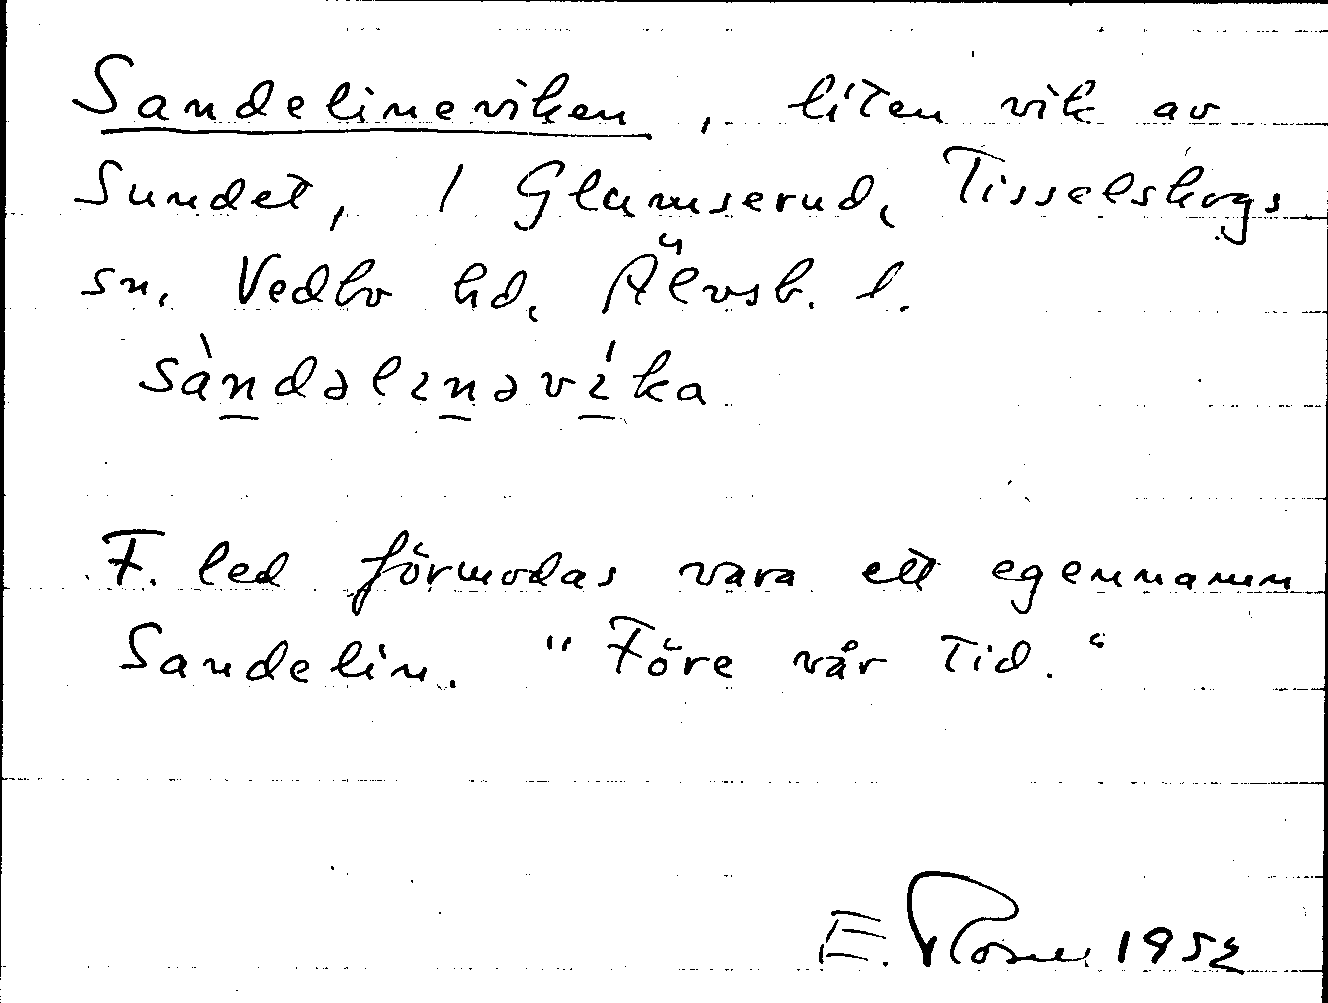 Sandelineviken, liten vik av
Sundet, 1 Glamserud, Tisselskogs
sn, Vedbo hd, Älvsb. l.
sàndəlɩnəvíka
F. led förmodas vara ett egennamn
Sandelin. "Före vår tid."
E. 1952